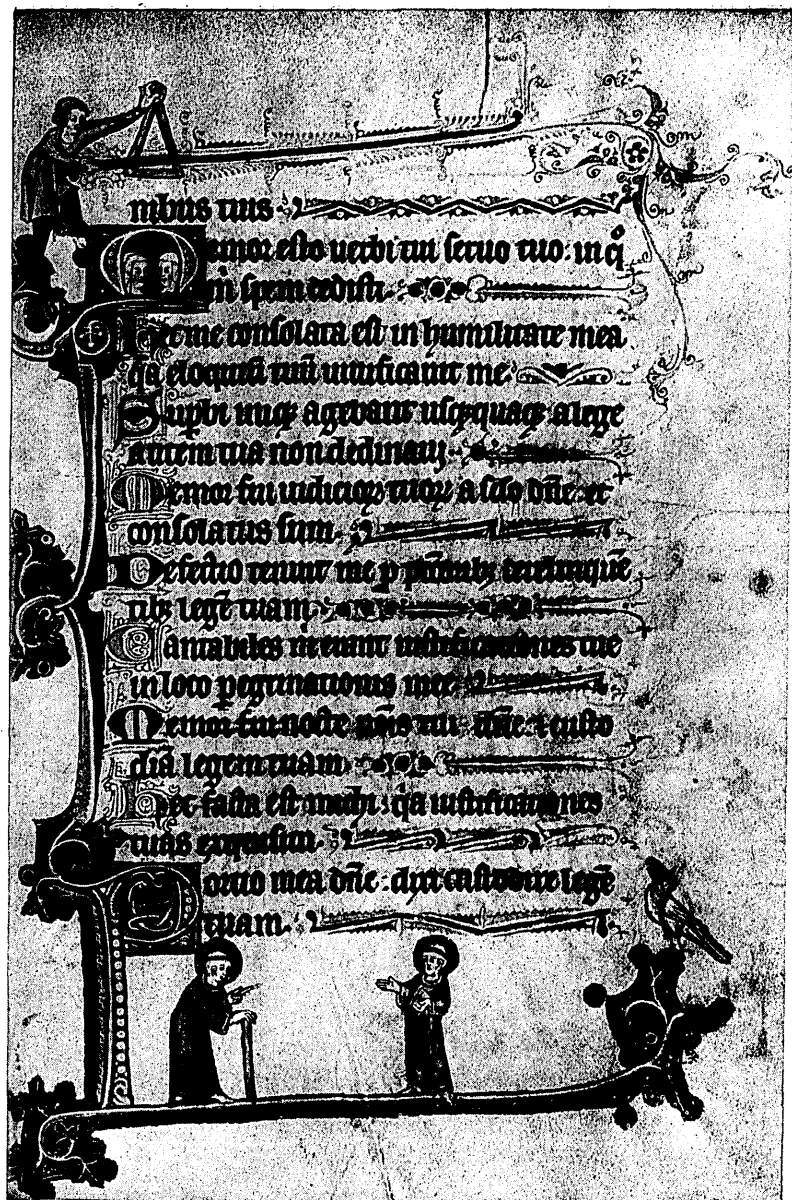 nibus tuis
Memor esto uerbi tui seruo tuo: in q°
m spem dedisti
Hec me consolata est in humilitate mea
qa eloquiū tuū uiuificauit me
Supbi iniq; agebant usq;quaq; a lege
autem tua non declinaui
Memor fui iudicioꝝ tuoꝝ a sclo dn̄e: et
consolatus sum
Defectio tenuit me p pctoribꝫ derelinquē
tibꝫ legē tuam
Cantabiles m erant iustificationes tue
in loco pegrinationis mee
Memor fui nocte nōis tui dn̄e: ⁊ custo
diui legem tuam
Hec facta est michi: qa iustificationes
tuas exquisiui
Porcio mea dn̄e: dixi custodire legē
tuam